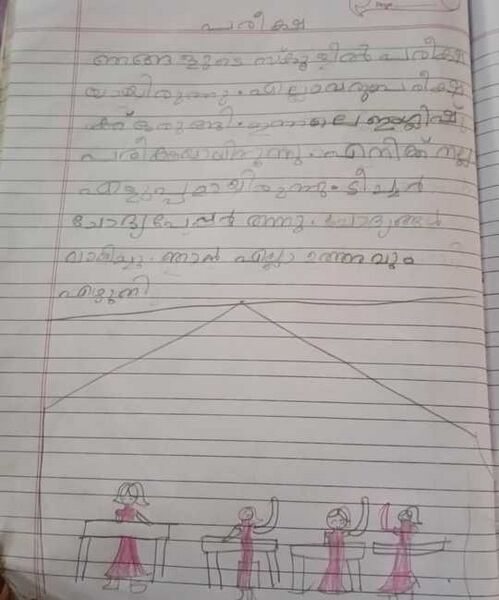 പരീക്ഷ
ഞങ്ങളുടെ സ്കൂളിൽ പരീക്ഷ
യായിരുന്നു. എല്ലാവരും പരീക്ഷ
ക്ക് ഒരുങ്ങി. ഇന്നലെ ഇംഗ്ലീഷ്
പരീക്ഷയായിരുന്നു. എനിക്ക് നല്ല
എളുപ്പമായിരുന്നു. ടീച്ചർ
ചോദ്യപേപ്പർ തന്നു. ചോദ്യങ്ങൾ
വായിച്ചു. ഞാൻ എല്ലാ ഉത്തരവും
എഴുതി.